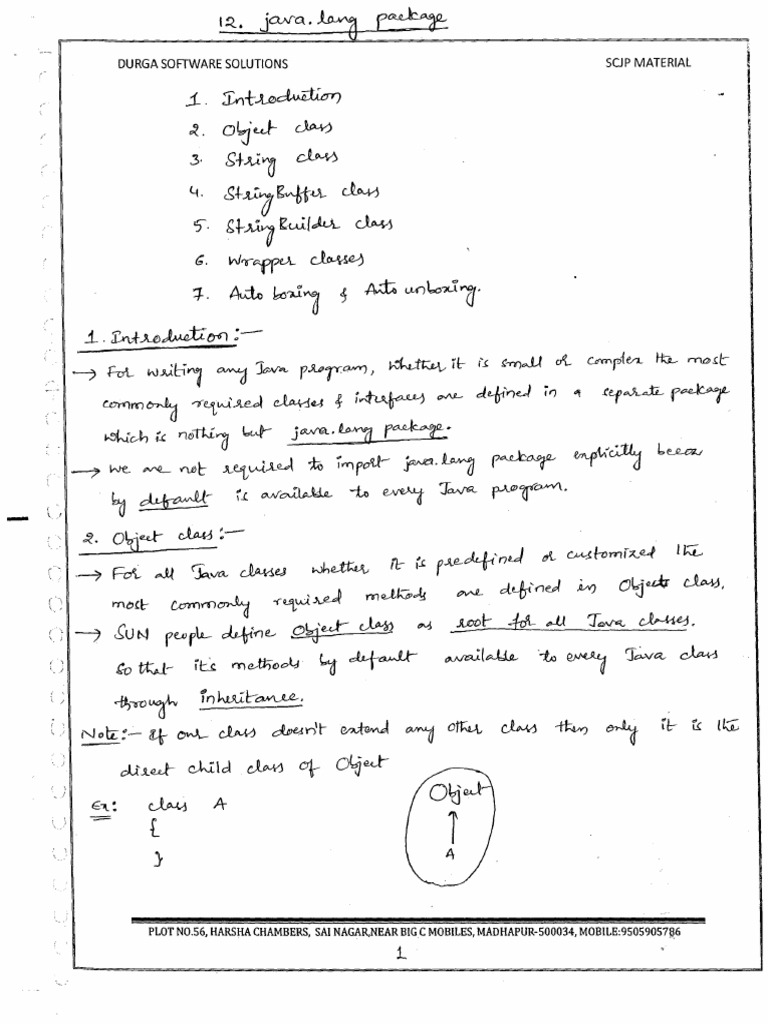 12. java.lang package
DURGA SOFTWARE SOLUTIONS SCJP MATERIAL
1. Introduction
2. Object class
3. String class
4. StringBuffer class
5. StringBuilder class
6. Wrapper classes
7. Auto boxing & Auto unboxing.
1. Introduction:-
→ For writing any Java program, whether it is small or complex the most
commonly required classes & interfaces are defined in a separate package
which is nothing but java.lang package.
→ we are not required to import java.lang package explicitly becoz
by default is available to every Java program.
2. Object class:-
→ For all Java classes whether it is predefined or customized the
most commonly required methods are defined in Object class.
→ SUN people define Object class as root for all Java classes.
so that it's methods by default available to every Java class
through inheritance.
Note:- If our class doesn't extend any other class then only it is the
direct child class of Object
Ex: class A
{
}
Object
↑
A
PLOT NO.56, HARSHA CHAMBERS, SAI NAGAR,NEAR BIG C MOBILES, MADHAPUR-500034, MOBILE:9505905786
1